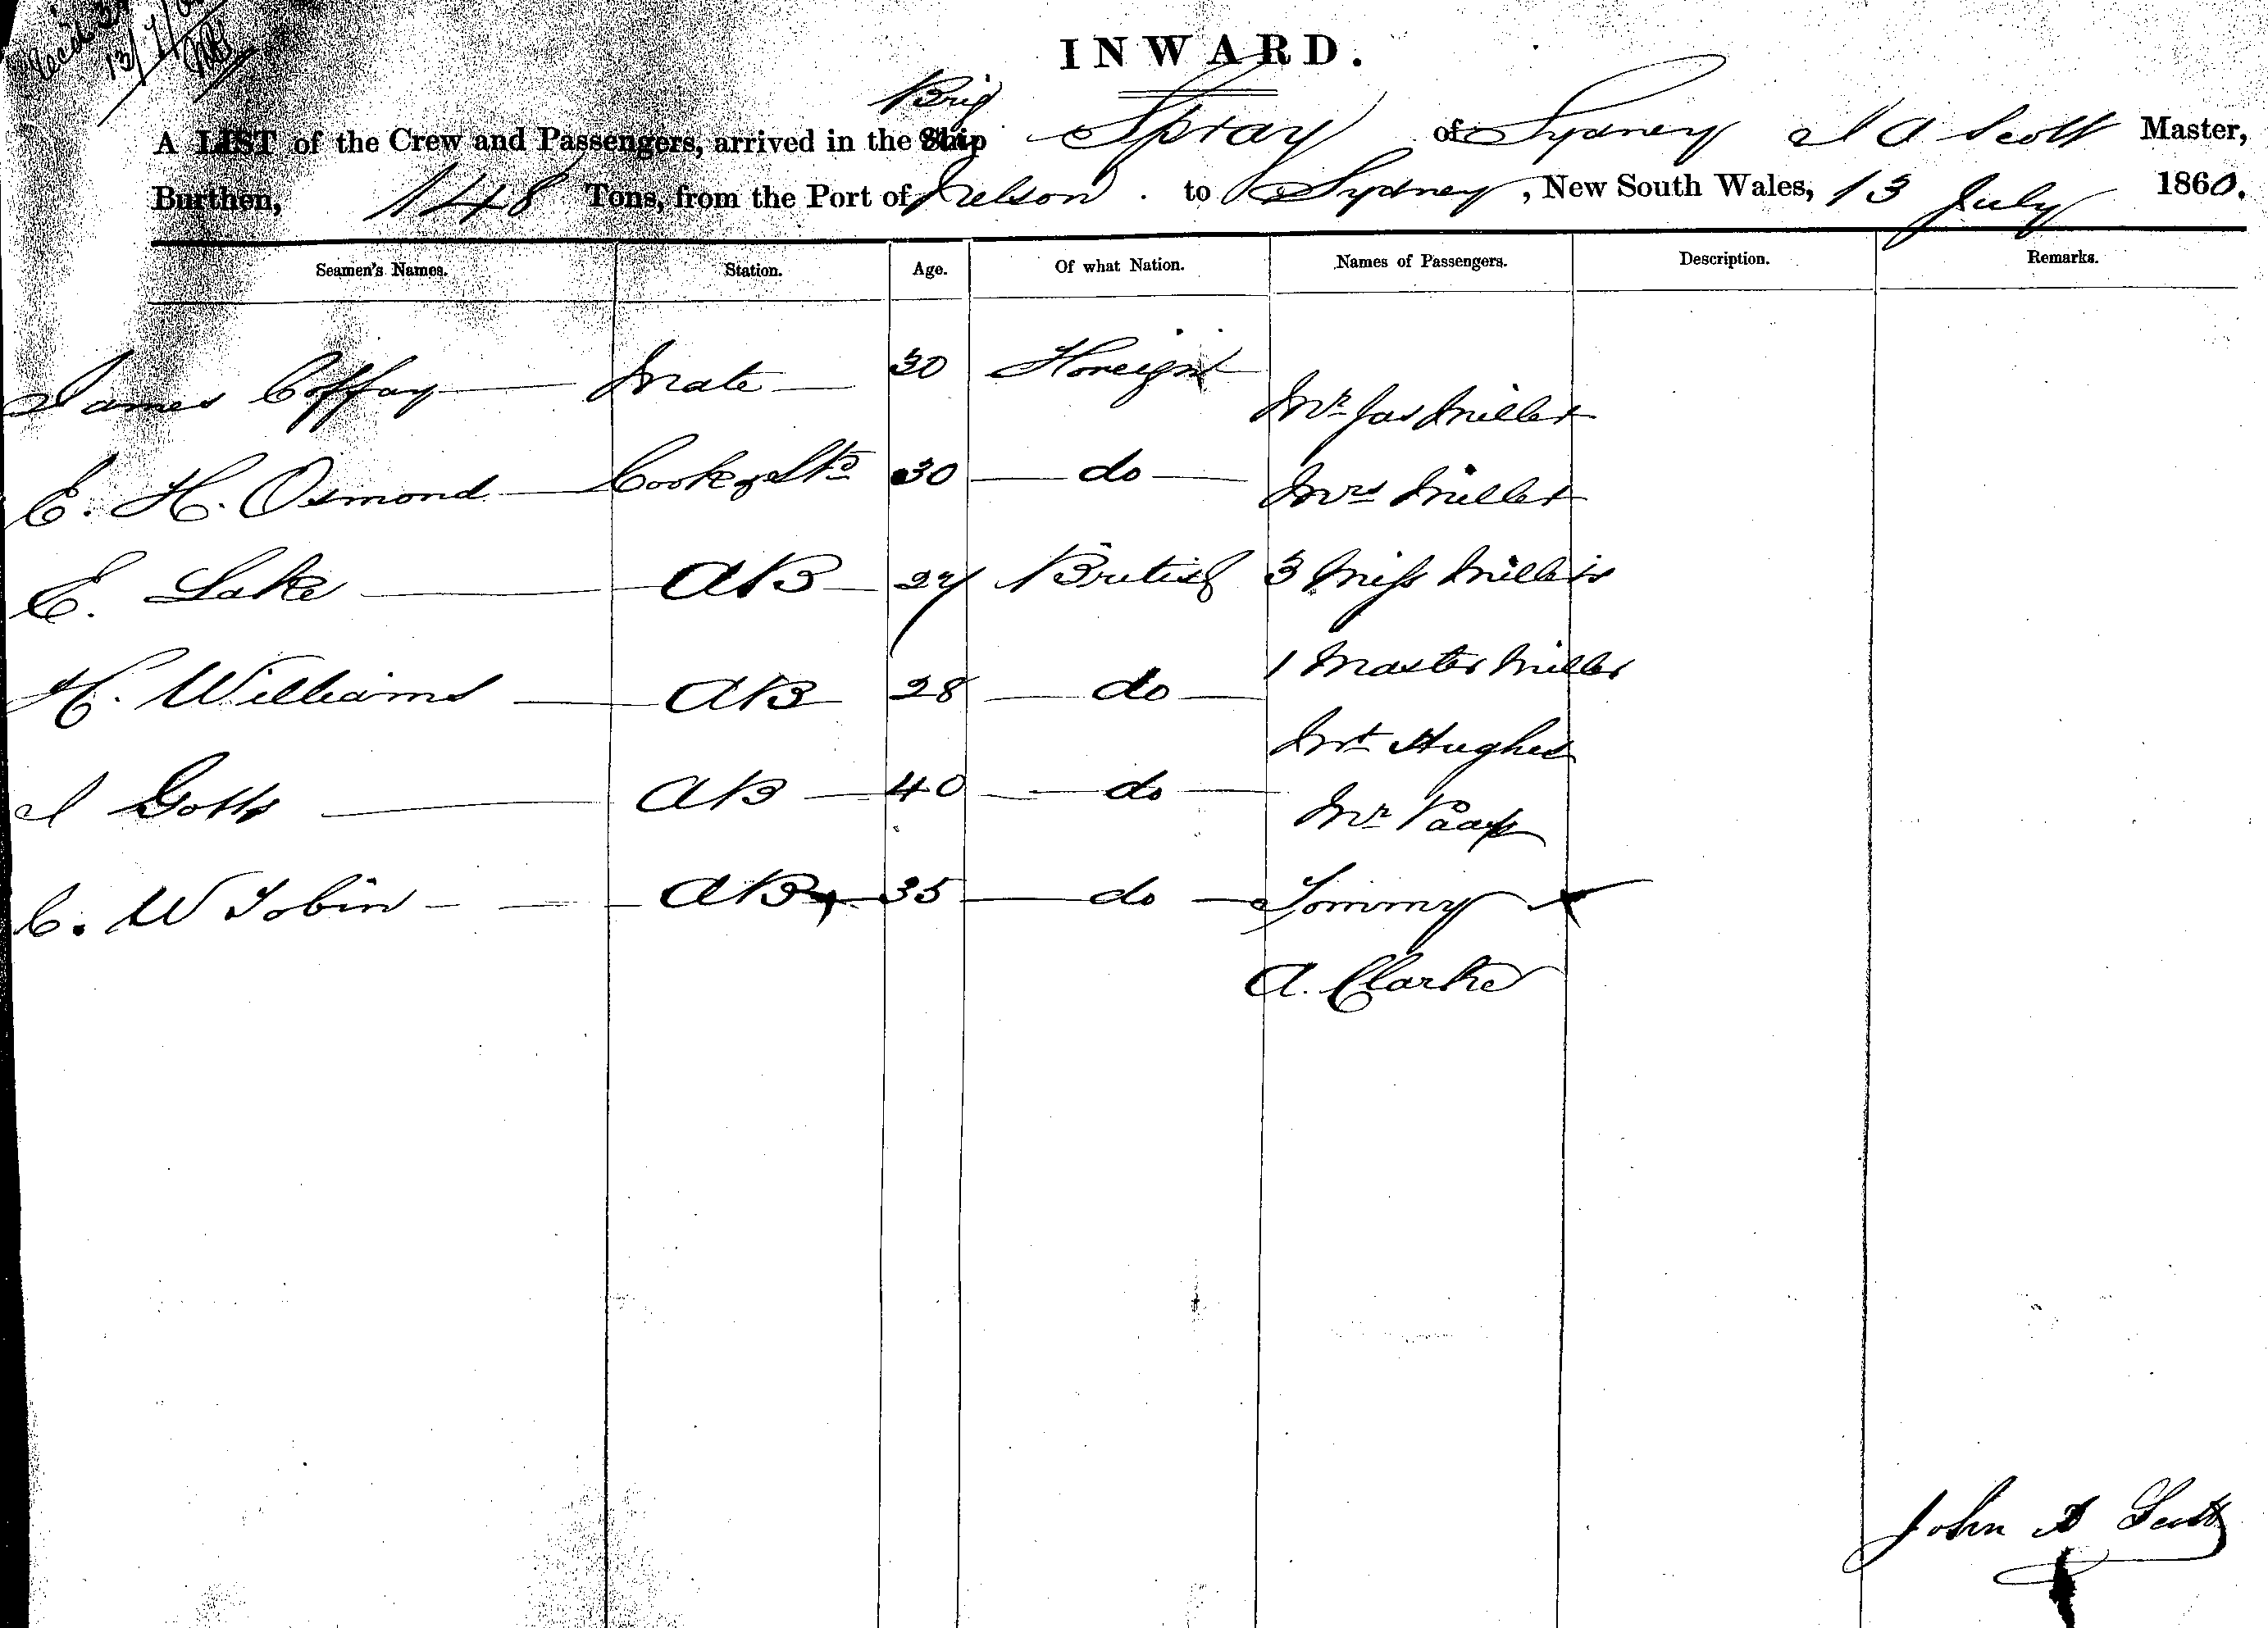 13/7/60
INWARD.
Brig
A LIST of the Crew and Passengers, arrived in the Ship Spray of Sydney J A Scott Master,
Burthen, 148 Tons, from the Port of Nelson. to Sydney, New South Wales, 13 July 1860.
Seamen's Names. Station. Age. Of what Nation. Names of Passengers. Description. Remarks.
James Coffay Mate 30 Foreign Mr Jas Miller
E. H. Osmond Cook & Std 30 do Mrs Miller
E. Lake AB 27 British 3 Miss Millers
1 Master Miller
H. Williams AB 28 do
Mr Hughes
J Gotts AB 40 do
Mr Paap
C. W Tobin AB 35 do Tommy
A. Clarke
John A Scott